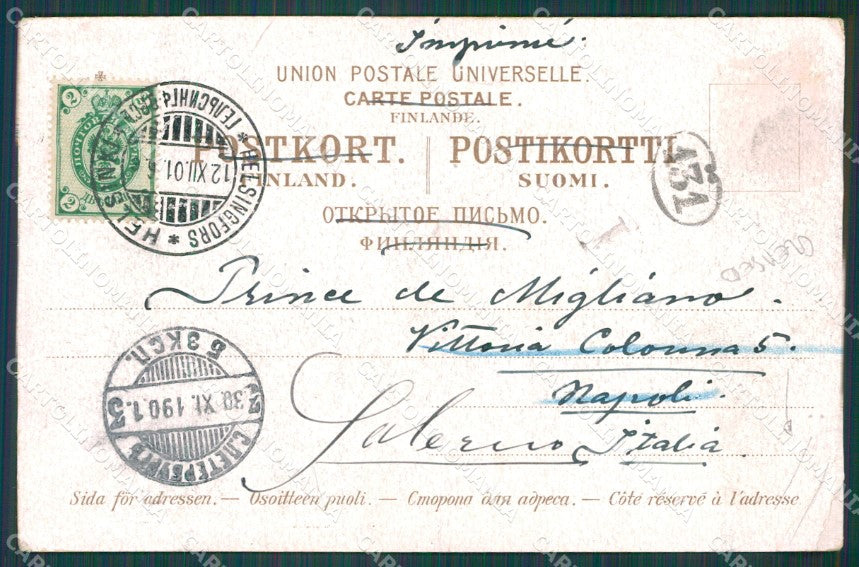 Imprimé.
UNION POSTALE UNIVERSELLE.
CARTE POSTALE.
FINLANDE.
POSTKORT. POSTIKORTTI
FINLAND. SUOMI.
ОТКРЫТОЕ ПИСЬМО.
ФИНЛЯНДІЯ.
2
2
HELSINGFORS * HELSINKI *
12 XII.01.
431
T
Prince de Migliano.
Vittoria Colonna 5.
Napoli.
Salerno Italia
С.ПЕТЕРБУРГЪ
30.XI.1901.
3
5 ЭКСП.
Sida för adressen. — Osoitteen puoli. — Сторона для адреса. — Côté réservé à l'adresse
CARTOLINOMANIA